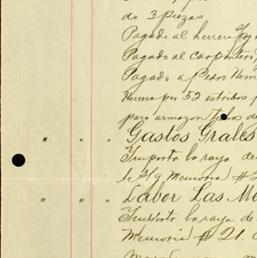 do 3 piezas
Pagado al herrero por
Pagado al carpintero
Pagado a Pedro
Herrera por 52 estribos
para armazon
" " " Gastos Grales
Importó la raya de
Memoria #
" " " Labor Las
Importó la raya de
Memoria # 21.